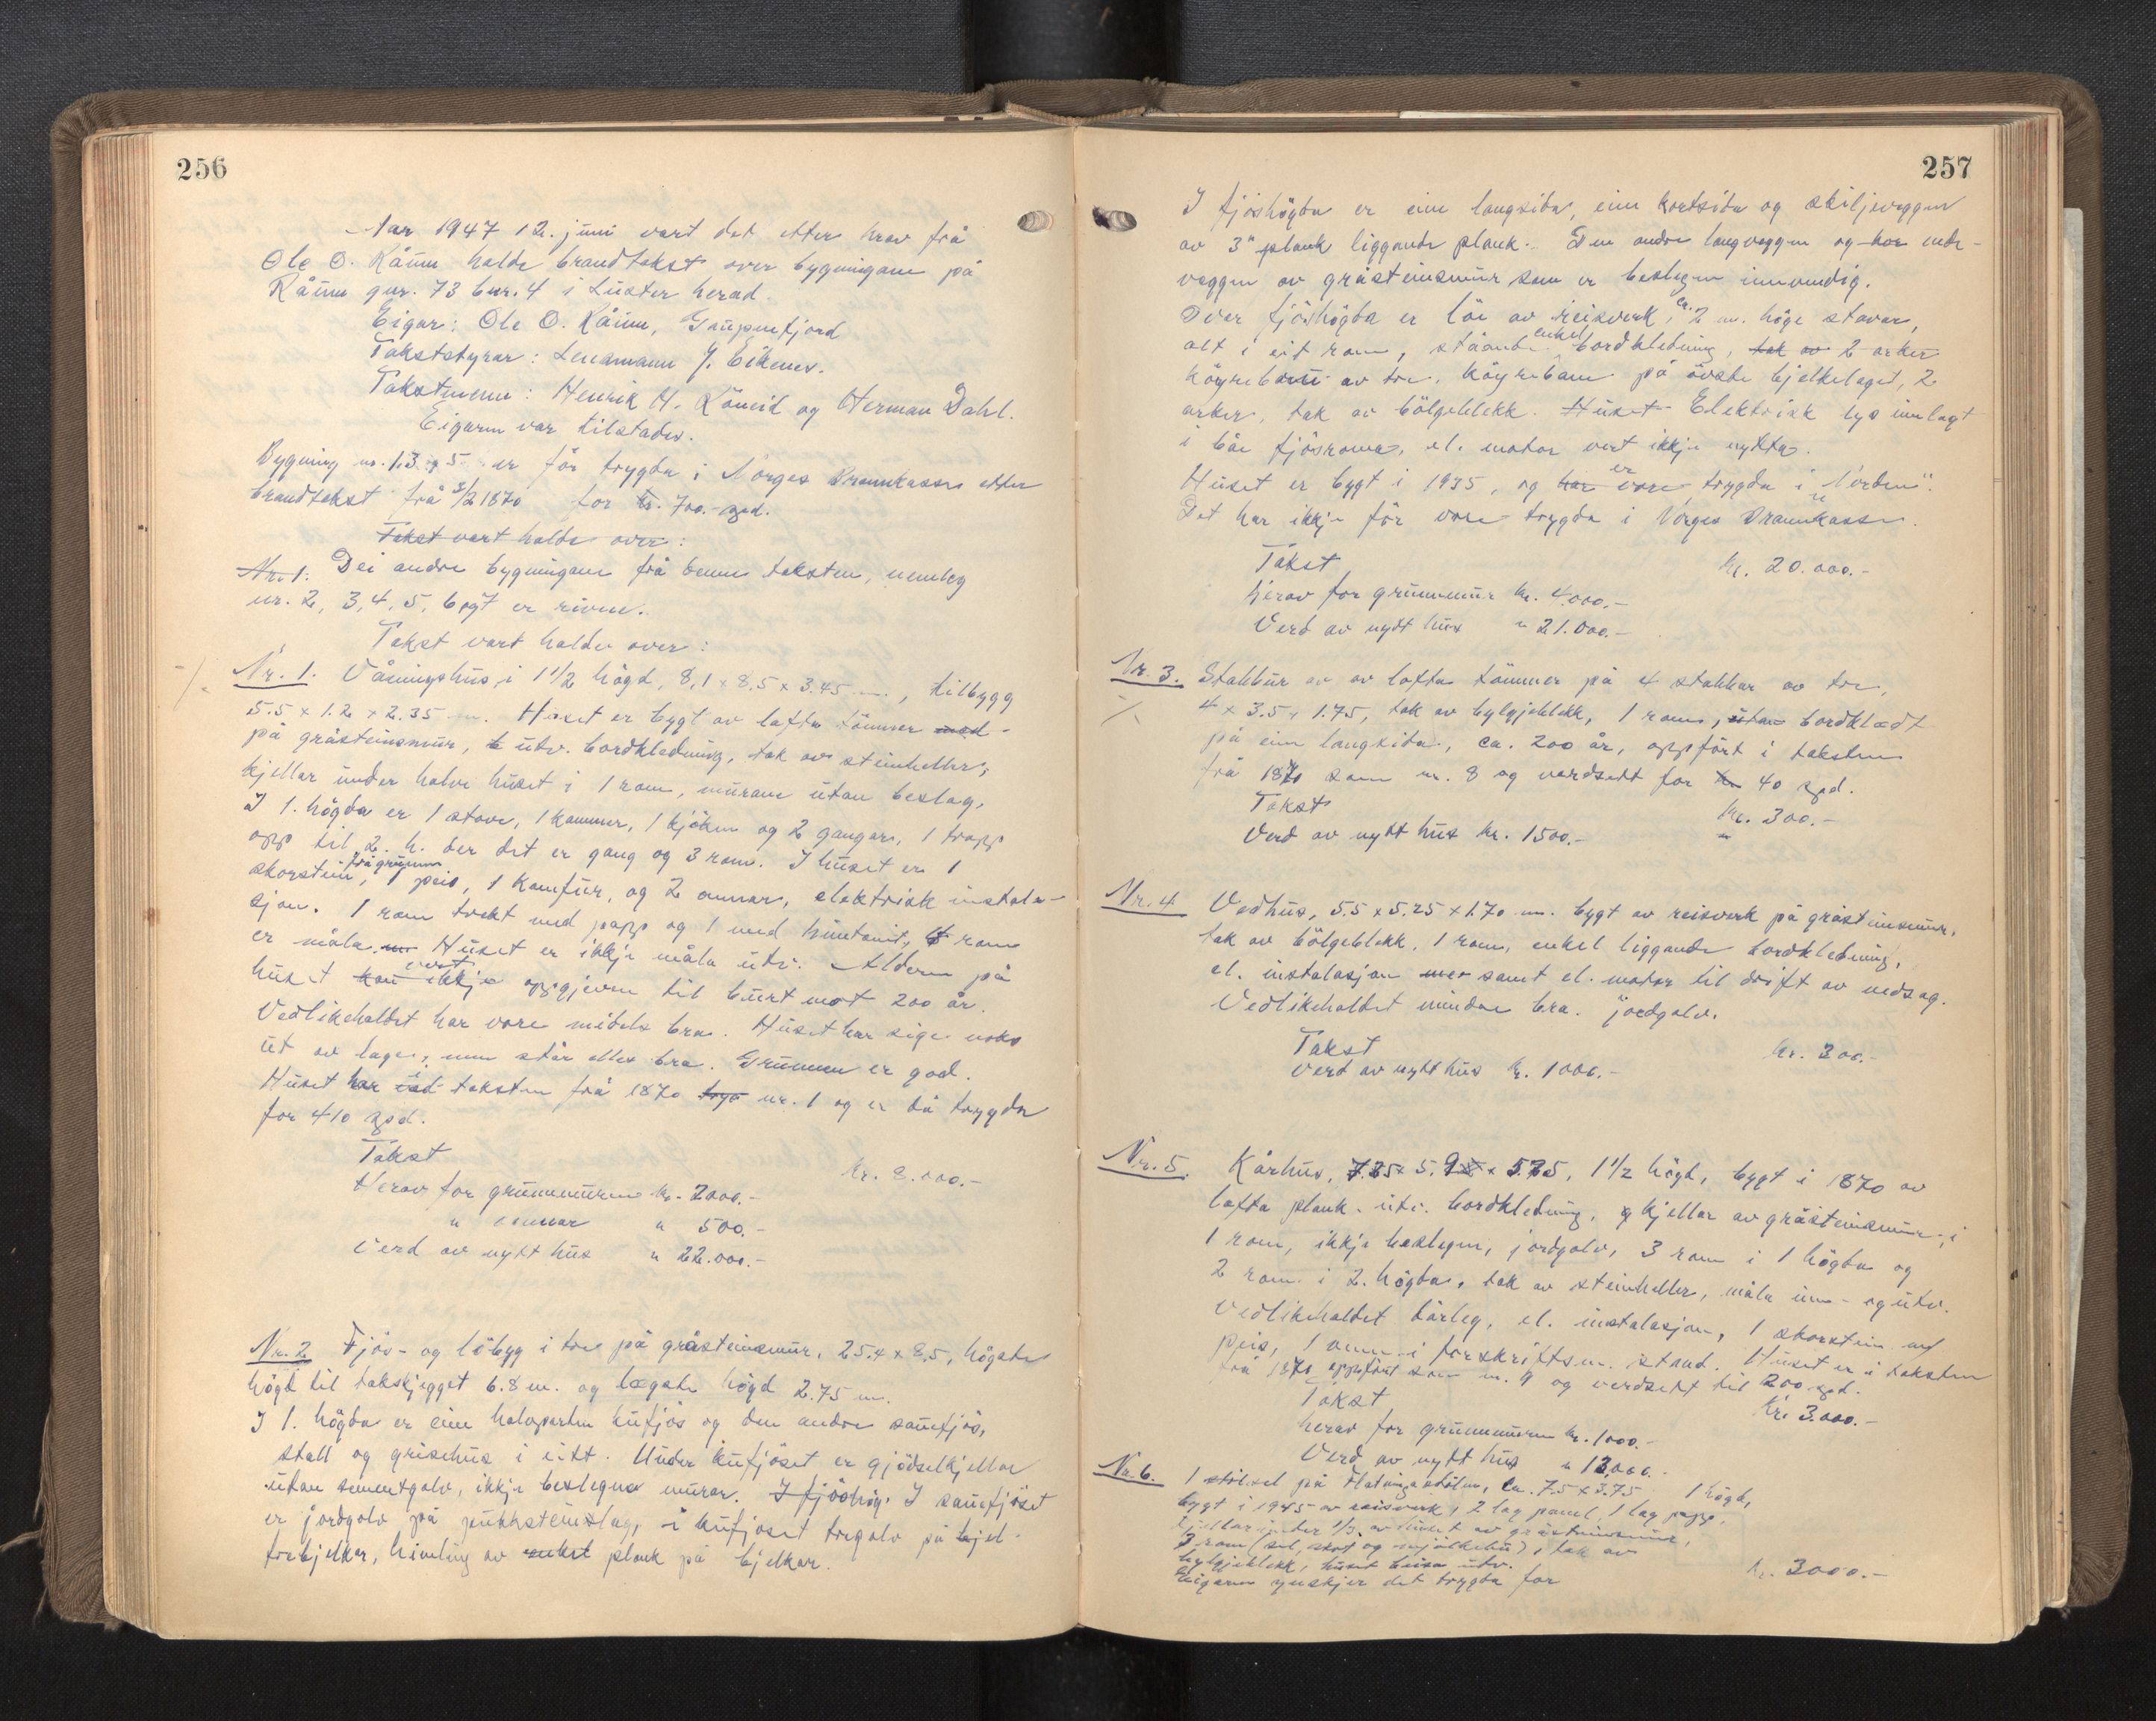 256
Aar 1947 12. juni vart det etter krav frå
Ole O. Råum halde brandtakst over bygningane på
Råum gnr. 73 bnr. 4 i Luster herad.
Eigar: Ole O. Råum, Gaupnefjord
Takststyrar: Lensmann J. Eikenes.
Takstmenn: Henrik H. Röneid og Herman Dahl.
Eigaren var tilstades.
Bygning nr. 1, 3 og 5 er för trygda i Norges Brannkasse etter
brandtakst frå 3/2 1870 for kr. 700.- spd.
Takst vart halde over:
Nr. 1. Dei andre bygningane frå denne taksten, nemleg
nr. 2, 3, 4, 5, 6 og 7 er rivne.
Takst vart halde over:
Nr. 1. Våningshus, i 1 1/2 högd, 8,1 x 8.5 x 3.45 m., tilbygg
5.5 x 1.2 x 2.35 m. Huset er bygt av lafta tömmer med
på gråsteinsmur, utv. bordkledning, tak av steinheller,
kjellar under halve huset i 1 rom, murane utan beslag,
I 1. högda er 1 stove, 1 kammer, 1 kjöken og 2 gangar, 1 trapp
opp til 2. h. der det er gang og 3 rom. I huset er 1
skorstein, frå grunnen 1 peis, 1 komfur, og 2 omnar, elektrisk instala-
sjon. 1 rom trekt med papp og 1 med huntonit, 4 rom
er måla. Huset er ikkje måla utv. Alderen på
huset kan vert ikkje oppgjeven til burt mot 200 år.
Vedlikehaldet har vore midels bra. Huset har sige noko
ut av lage, men står elles bra. Grunnen er god.
Huset har i ved taksten frå 1870 nr. 1 og er då trygda
for 410 spd.
Takst kr. 8.000.-
Herav for grunnmuren kr. 2000.-
" omnar " 500.-
Verd av nytt hus " 22.000.-
Nr. 2 Fjös- og löbygg i tre på gråsteinsmur, 25.4 x 8.5, högste
högd til takskjegget 6.8 m. og lægste högd 2.75 m.
I 1. högda er eine halvparten kufjös og den andre sauefjös,
stall og grisehus i eitt. Under kufjöset er gjödselkjellar
utan sementgolv, ikkje beslegne murar. I fjöshög. I sauefjöset
er jordgolv på pukksteinslag, i kufjöset tregolv på bjel-
trebjelker, himling av enkel plank på bjelkar.
257
I fjöshögda er eine langsida, eine kortsida og skiljeveggen
av 3" plank liggande plank. Den andre langveggen og hor ende-
veggen av gråsteinsmur som er beslegen innvendig.
Over fjöshögda er löe av reisverk, ca. 2 m. höge stavar,
alt i eit rom, ståande enkel bordkledning, tak av 2 arker
köyrebru av tre, köyrebane på övste bjelkelaget, 2
arker, tak av bölgeblekk. Huset Elektrisk lys innlagt
i båe fjösroma, el. motor vert ikkje nytta.
Huset er bygt i 1935, og har vore er trygda i "Norden".
Det har ikkje för vore trygda i Norges Brannkasse.
Takst kr. 20.000.-
herav for grunnmur kr. 4.000.-
Verd av nytt hus " 21.000.-
Nr. 3. Stabbur av lafta tömmer på 4 stabbar av tre,
4 x 3.5 x 1.75, tak av bylgjeblekk, 1 rom, utan bordklædt
på eine langsida, ca. 200 år, oppfört i taksten
frå 1870 som nr. 8 og verdsett for kr 40 spd.
Takst kr. 300.-
Verd av nytt hus kr. 1500.- "
Nr. 4 Vedhus, 5.5 x 5.25 x 1.70 m. bygt av reisverk på gråsteinsmur,
tak av bölgeblekk, 1 rom, enkel liggande bordkledning,
el. instalasjon samt el. motor til drift av vedsag.
Vedlikehaldet mindre bra. jordgolv.
Takst kr. 300.-
Verd av nytt hus kr. 1000.-
Nr. 5. Kårhus, 7.25 x 5.9 x 5.25, 1 1/2 högd, bygt i 1870 av
lafta plank. utv. bordkledning, kjellar av gråsteinsmur, i
1 rom, ikkje beslegen, jordgolv, 3 rom i 1 högda og
2 rom i 2. högda, tak av steinheller, måla inn- og utv.
Vedlikehaldet dårleg, el. instalasjon, 1 skorstein m/
peis, 1 omn i forskriftsm. istand. Huset er i taksten
frå 1870 oppfört som nr. 9 og verdsett til 200 spd.
Takst kr. 3.000.-
herav for grunnmuren kr. 1000.-
Verd av nytt hus " 12,000.-
Nr. 6. 1 stölsel på stölen, ca. 7.5 x 3.75 1 högd,
bygt i 1945 av reisverk, 2 lag panel, 1 lag papp,
kjellar under 1/3 av huset av gråsteinsmur,
3 rom (sel, skot og mjölkebu), tak av
bylgjeblekk, huset beisa utv.
Eigaren ynskjer det trygda for kr. 3000.-